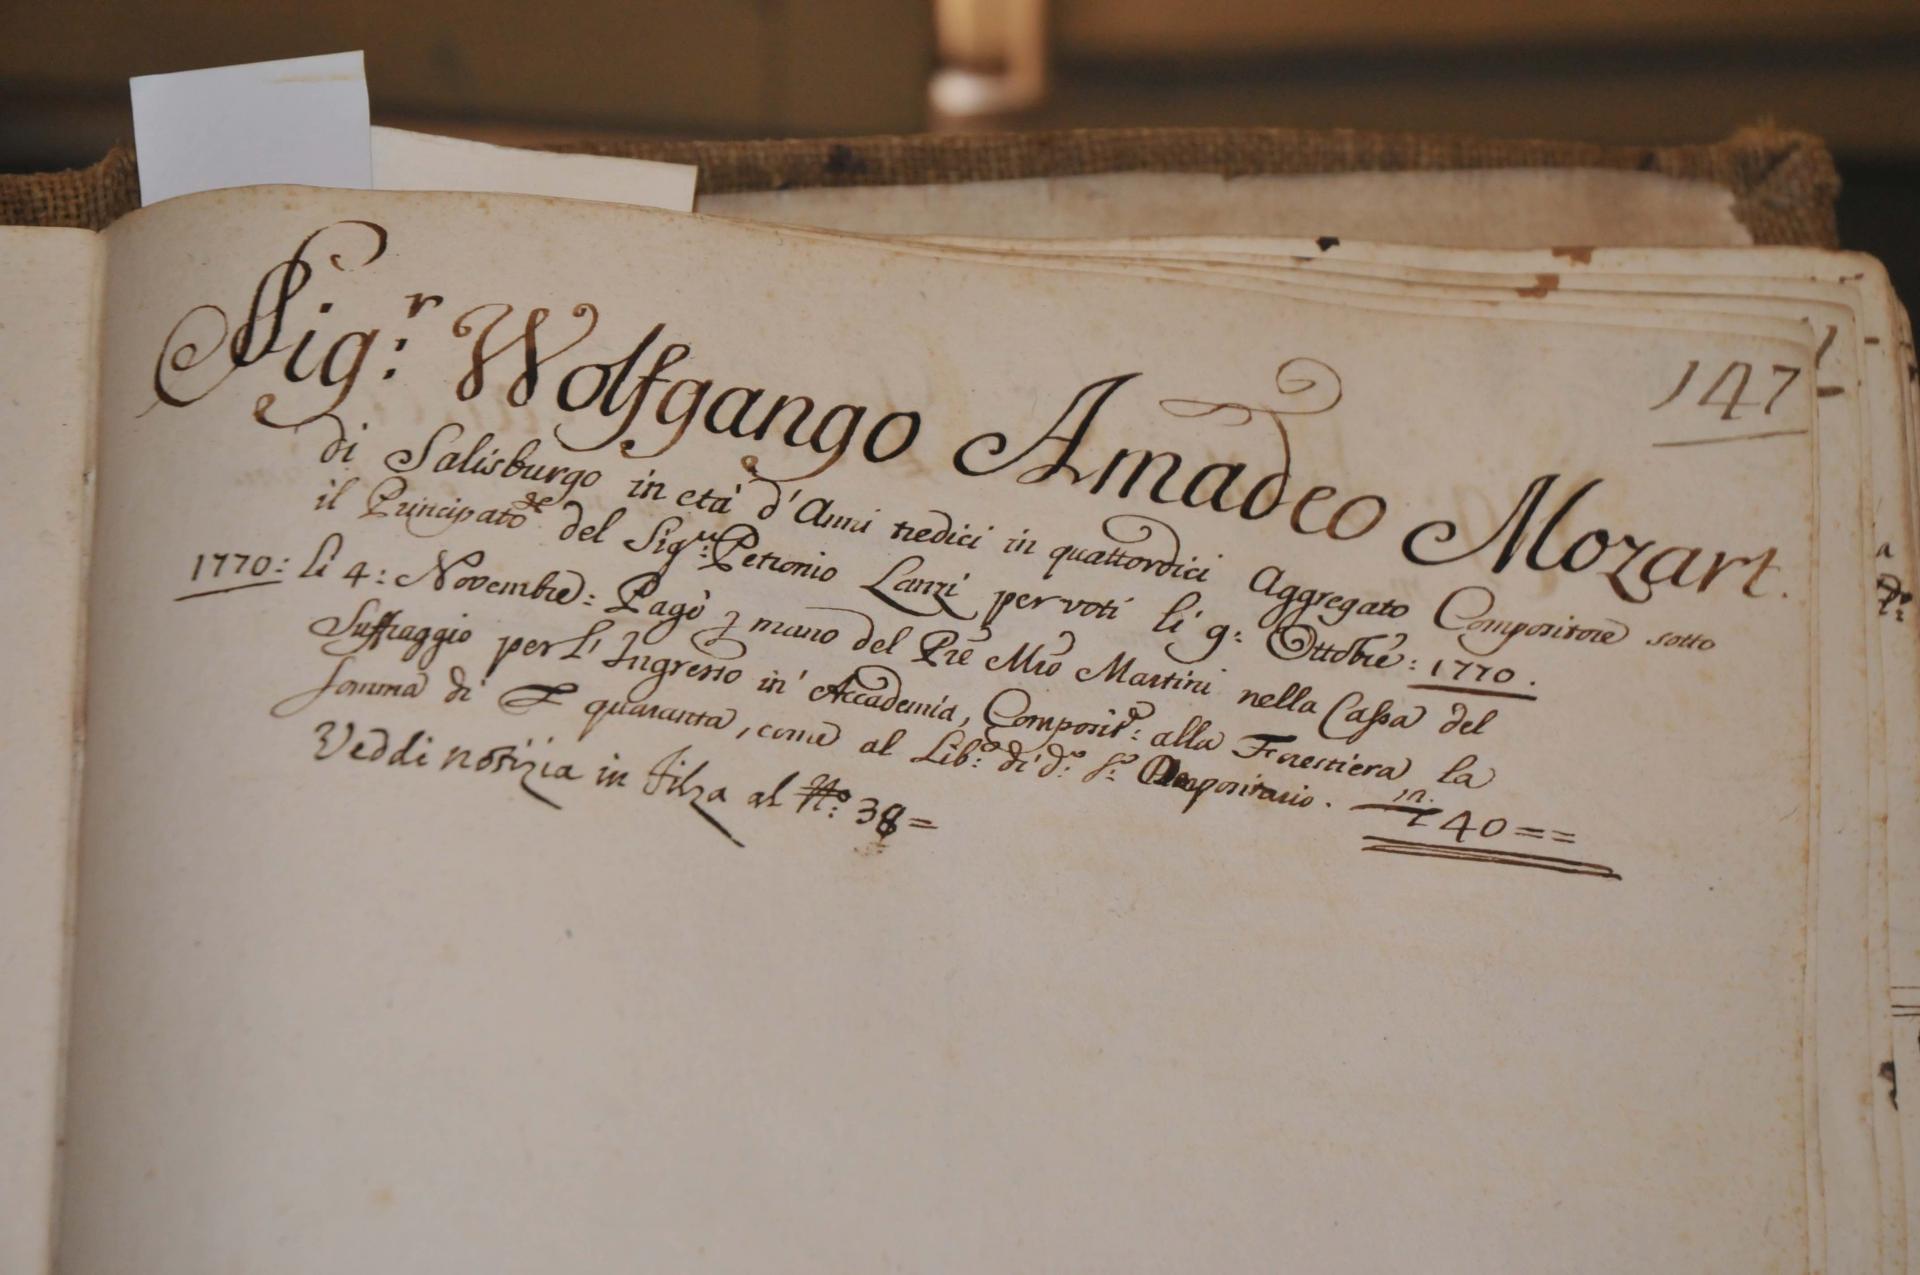 147
Sig.r Wolfgango Amadeo Mozart.
di Salisburgo in età d'Anni tredici in quattordici Aggregato Compositore sotto
il Principato del Sig.r Petronio Lanzi per voti li 9: Ottobre: 1770.
1770: li 4: Novembre: Pagò mano del Pre Mro Martini nella Cassa del
Suffraggio per l'Ingresso in' Accademia, Composit.e alla Forestiera, la
somma di £ quaranta, come al Lib.o di d.o S.r Depositario. £ 40==
Veddi notizia in Filza al N.o 38=